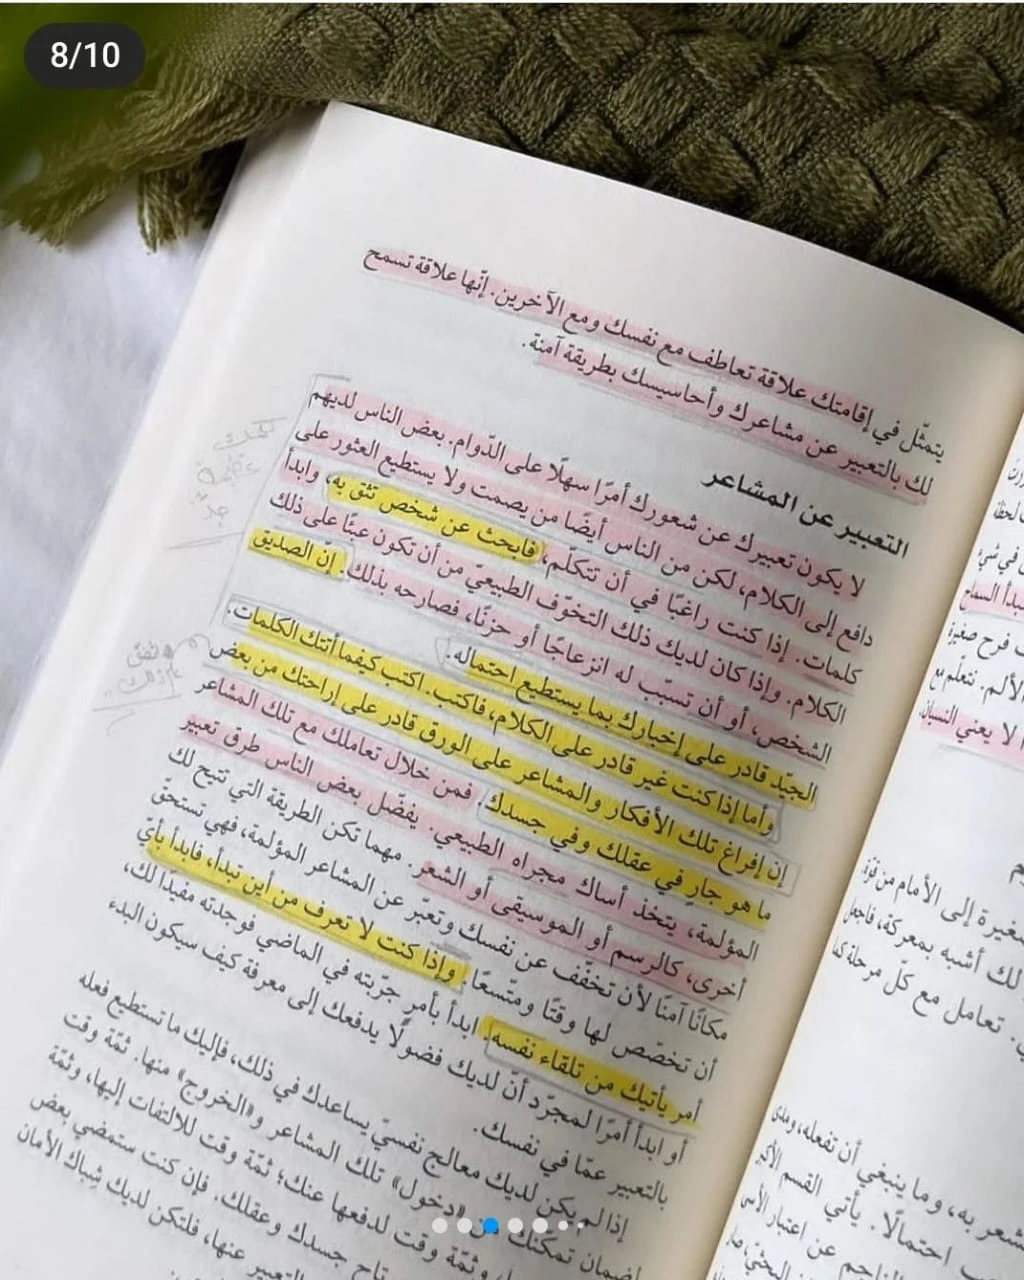 8/10
يتمثّل في إقامتك علاقة تعاطف مع نفسك ومع الآخرين. إنّها علاقة تسمح
لك بالتعبير عن مشاعرك وأحاسيسك بطريقة آمنة.
التعبير عن المشاعر
لا يكون تعبيرك عن شعورك أمرًا سهلًا على الدّوام. بعض الناس لديهم
دافع إلى الكلام، لكن من الناس أيضًا من يصمت ولا يستطيع العثور على
كلمات. إذا كنت راغبًا في أن تتكلّم، فابحث عن شخص تثق به، وابدأ
الكلام. وإذا كان لديك ذلك التخوّف الطبيعيّ من أن تكون عبئًا على ذلك
الشخص، أو أن تسبّب له انزعاجًا أو حزنًا، فصارحه بذلك. إنّ الصديق
الجيّد قادر على إخبارك بما يستطيع احتماله.
وأما إذا كنت غير قادر على الكلام، فاكتب. اكتب كيفما أتتك الكلمات.
إن إفراغ تلك الأفكار والمشاعر على الورق قادر على إراحتك من بعض
ما هو جار في عقلك وفي جسدك. فمن خلال تعاملك مع تلك المشاعر
المؤلمة، يتخذ أساك مجراه الطبيعي. يفضّل بعض الناس طرق تعبير
أخرى، كالرسم أو الموسيقى أو الشعر. مهما تكن الطريقة التي تتيح لك
مكانًا آمنًا لأن تخفّف عن نفسك وتعبّر عن المشاعر المؤلمة، فهي تستحقّ
أن تخصّص لها وقتًا ومتّسعًا. وإذا كنت لا تعرف من أين تبدأ، فابدأ بأيّ
أمر يأتيك من تلقاء نفسه. ابدأ بأمر جرّبته في الماضي فوجدته مفيدًا لك،
أو ابدأ أمرًا لمجرّد أنّ لديك فضولًا يدفعك إلى معرفة كيف سيكون البدء
بالتعبير عمّا في نفسك.
إذا لم يكن لديك معالج نفسيّ يساعدك في ذلك، فإليك ما تستطيع فعله
لضمان تمكنك من «دخول» تلك المشاعر و«الخروج» منها. ثمّة وقت
وثمّة وقت لدفعها عنك؛ ثمّة وقت للالتفات إليها، وثمّة
جسدك وعقلك. فإن كنت ستمضي بعض
التعبير عنها، فلتكن لديك شباك الأمان
لحظة
في شيء
السماح
فرح صغيرة
الألم. نتعلّم مع
لا يعني النسيان.
صغيرة إلى الأمام من قوّة
لك أشبه بمعركة، فاجعل
تعامل مع كلّ مرحلة كما
به، وما ينبغي أن تفعله، ومدى
احتمالًا. يأتي القسم الأكبر
الناجم عن اعتبار الأسى